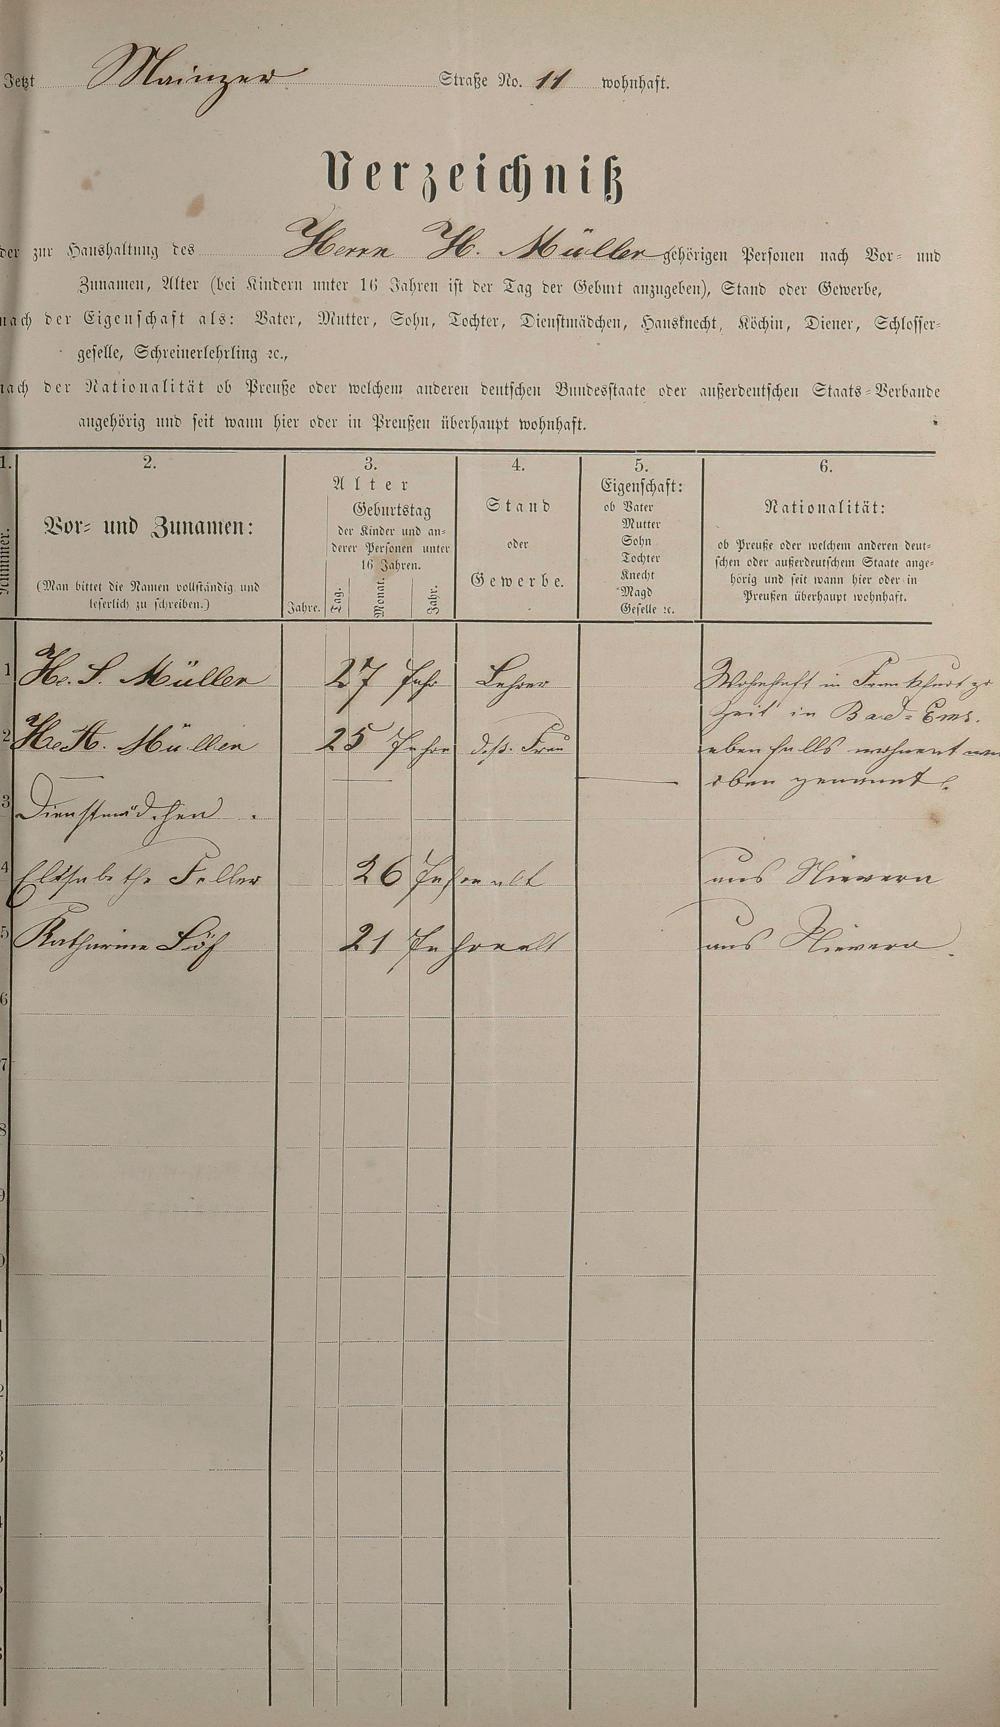 Jetzt Mainzer Straße No. 11 wohnhaft.
Verzeichniß
der zur Haushaltung des Herrn H. Müller gehörigen Personen nach Vor- und
Zunamen, Alter (bei Kindern unter 16 Jahren ist der Tag der Geburt anzugeben), Stand oder Gewerbe,
nach der Eigenschaft als: Vater, Mutter, Sohn, Tochter, Dienstmädchen, Hausknecht, Köchin, Diener, Schlosser-
geselle, Schreinerlehrling ꝛc.,
nach der Nationalität ob Preuße oder welchem anderen deutschen Bundesstaate oder außerdeutschen Staats-Verbande
angehörig und seit wann hier oder in Preußen überhaupt wohnhaft.
1.
Nummer.
2.
Vor- und Zunamen:
(Man bittet die Namen vollständig und
leserlich zu schreiben.)
3.
Alter
Jahre.
Geburtstag
der Kinder und an-
derer Personen unter
16 Jahren.
Tag. Monat. Jahr.
4.
Stand
oder
Gewerbe.
5.
Eigenschaft:
ob Vater
Mutter
Sohn
Tochter
Knecht
Magd
Geselle ꝛc.
6.
Nationalität:
ob Preuße oder welchem anderen deut-
schen oder außerdeutschem Staate ange-
hörig und seit wann hier oder in
Preußen überhaupt wohnhaft.
1 Müller 27 Jahr Lehrer Wohnhaft in Frankfurt zr
Zeit in Bad-Ems.
2 Müller 25 Jahre deß. Frau ebenfalls wohnent
oben genannt.
3 Dienstmädchen.
4 Elisabethe Feller 26 Jahre alt aus Nievern
5 Katharine Löf 21 Jahre alt aus Nievern.
6
7
8
9
0
1
2
3
4
5
6